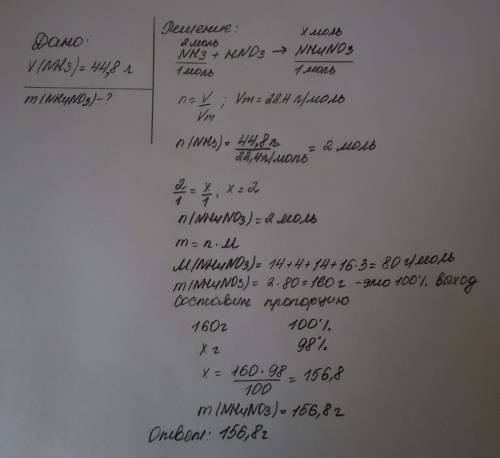 Дано:
V(NH3)=44,8 л
m(NH4NO3)-?
Решение:
2 моль x моль
NH3 + HNO3 → NH4NO3
1 моль 1 моль
n=V/Vm; Vm=22,4 л/моль
n(NH3)=44,8л/22,4л/моль=2 моль
2/1=x/1; x=2
n(NH4NO3)=2 моль
m=n·M
M(NH4NO3)=14+4+14+16·3=80 г/моль
m(NH4NO3)=2·80=160 г -это 100% выход
Составим пропорцию
160г 100%
x г 98%
x=160·98/100=156,8
m(NH4NO3)=156,8 г
Ответ: 156,8г